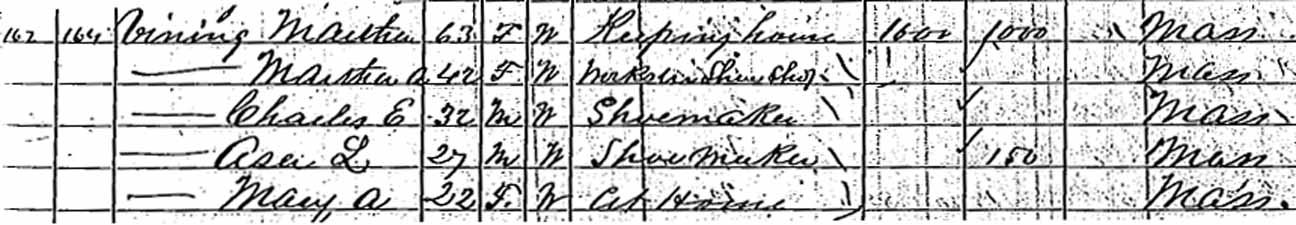 162 164 Vining Martha 63 F W Keeping house 1600 1000 Mass.
—— Martha A 42 F W Works in Shoe Shop Mass
—— Charles E 32 M W Shoemaker Mass
—— Asa L 27 M W Shoe Maker 150 Mass
—— Mary A 22 F. W At Home Mass.